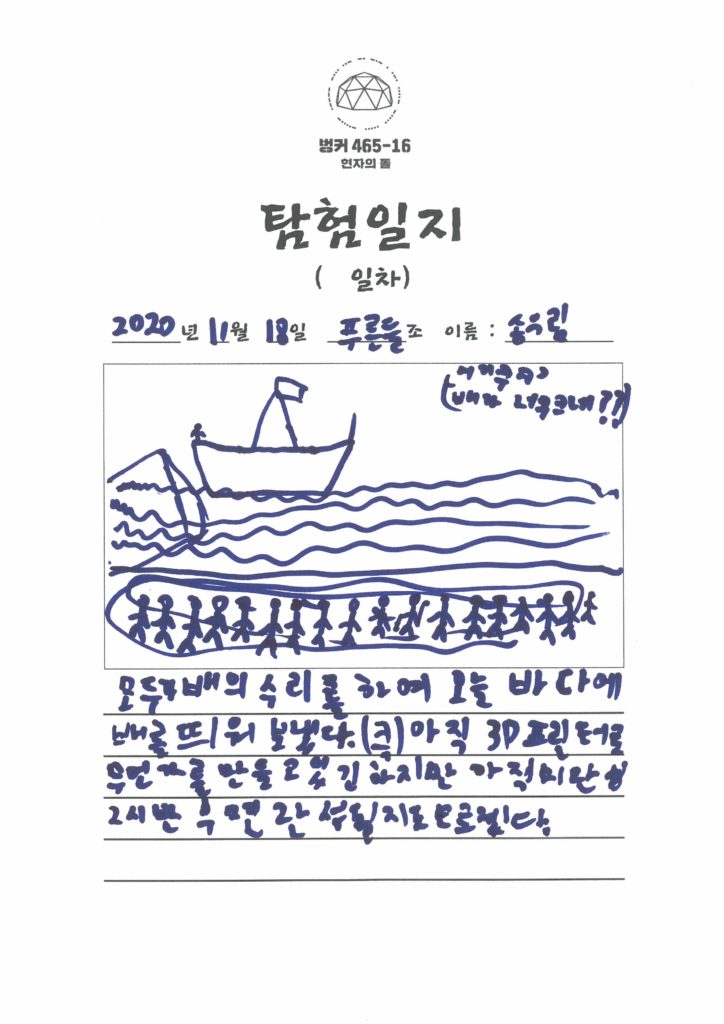 벙커 465-16
현자의 돌
탐험일지
( 일차)
2020년 11월 18일 푸른들조 이름 : 송우림
배가 너무크네??)
모두가 배의 수리를 하여 오늘 바다에
배를 띄워 보냈다. 아직 3D프린터로
우면 자를 만들고 있긴 하지만 아직 미완성
2시 반 우면 완성될지도 모르겠다.